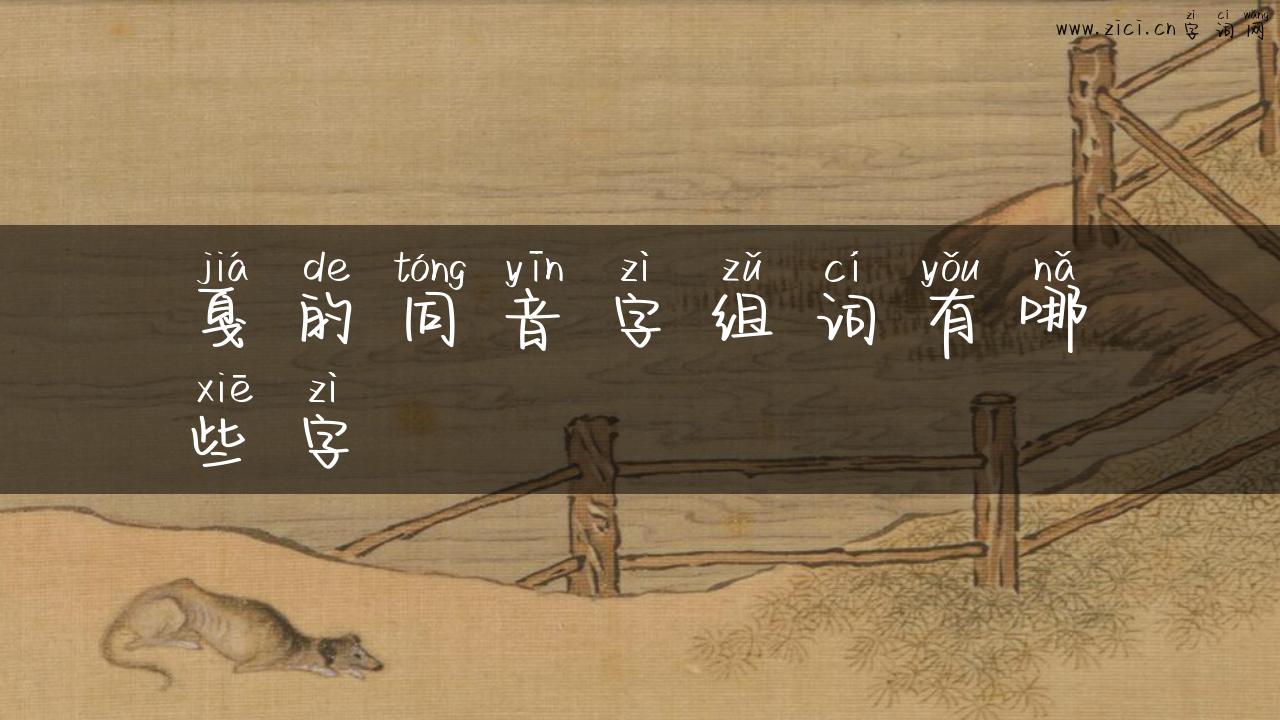 zì cí wǎng
www.zici.cn 字词网
jiá de tóng yīn zì zǔ cí yǒu nǎ
戛的同音字组词有哪
xiē zì
些字